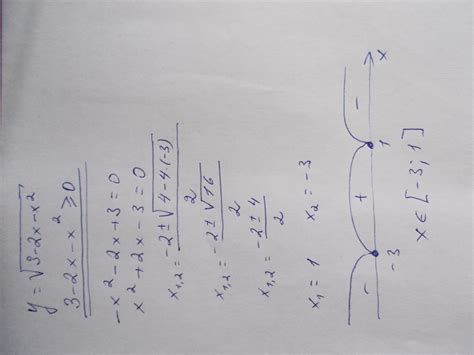 y = √(3-2x-x²)
3-2x-x² ≥ 0
-x²-2x+3=0
x²+2x-3=0
x₁,₂ = (-2±√(4-4(-3)))/2
x₁,₂ = (-2±√16)/2
x₁,₂ = (-2±4)/2
x₁=1 x₂=-3
- + - 
-3 1 x
x∈[-3;1]